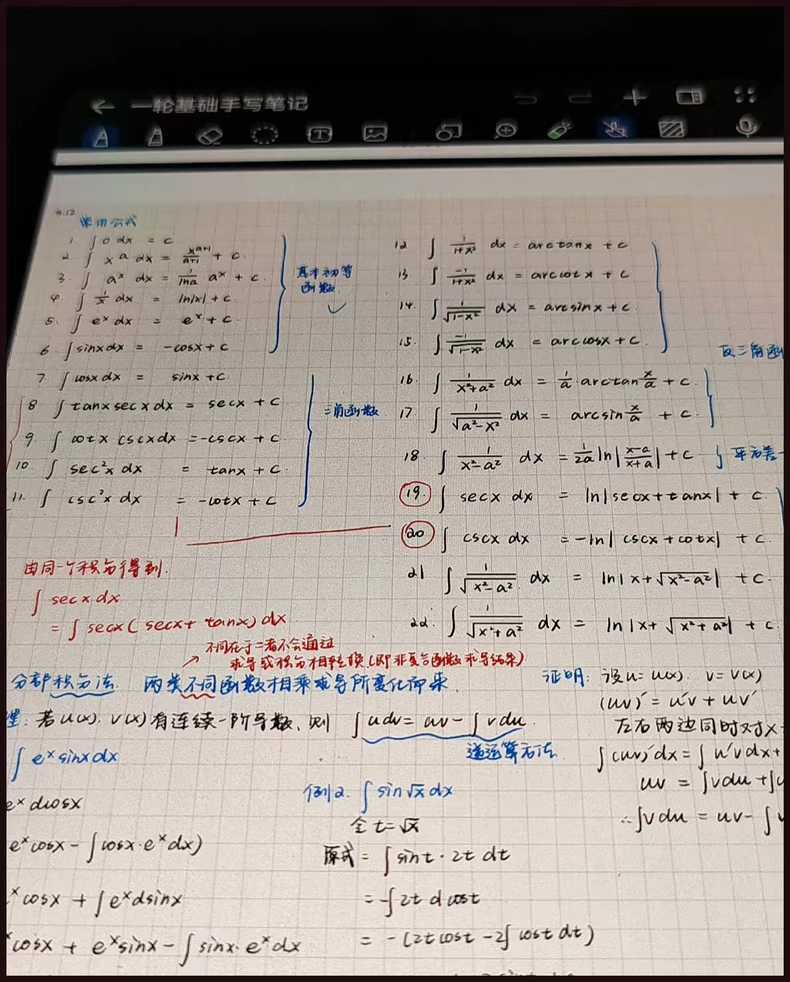 一轮基础手写笔记
常用公式
1. ∫ 0 dx = c
2. ∫ x^a dx = x^(a+1)/(a+1) + c
3. ∫ a^x dx = 1/lna a^x + c
4. ∫ 1/x dx = ln|x| + c
5. ∫ e^x dx = e^x + c
6. ∫ sinx dx = -cosx + c
基本初等
函数
7. ∫ cosx dx = sinx + c
8. ∫ tanx secx dx = secx + c
9. ∫ cotx cscx dx = -cscx + c
10. ∫ sec²x dx = tanx + c
11. ∫ csc²x dx = -cotx + c
三角函数
12. ∫ 1/(1+x²) dx = arctanx + c
13. ∫ -1/(1+x²) dx = arccotx + c
14. ∫ 1/√(1-x²) dx = arcsinx + c
15. ∫ -1/√(1-x²) dx = arccosx + c
反三角函
16. ∫ 1/(x²+a²) dx = 1/a · arctan x/a + c
17. ∫ 1/√(a²-x²) dx = arcsin x/a + c
18. ∫ 1/(x²-a²) dx = 1/2a ln|(x-a)/(x+a)| + c
平方差
19. ∫ secx dx = ln|secx+tanx| + c
20. ∫ cscx dx = -ln|cscx+cotx| + c
21. ∫ 1/√(x²-a²) dx = ln|x+√(x²-a²)| + c
22. ∫ 1/√(x²+a²) dx = ln|x+√(x²+a²)| + c
由同一个积分得到.
∫ secx dx
= ∫ secx(secx+tanx) dx
不同在于二者不会通过
求导或积分相互转换(即非复合函数求导结果)
分部积分法. 两类不同函数相乘求导所变化而来.
若u(x). v(x)有连续一阶导数, 则 ∫udv = uv - ∫vdu.
逆运算方法
∫ e^x sinx dx
e^x dcosx
e^x cosx - ∫cosx·e^x dx)
^x cosx + ∫e^x dsinx
^x cosx + e^x sinx - ∫sinx·e^x dx
例2. ∫ sin√x dx
令 t=√x
原式 = ∫ sint · 2t dt
= -∫ 2t d cost
= -(2t cost - 2∫ cost dt)
证明: 设u=u(x). v=v(x)
(uv)' = u'v + uv'
左右两边同时对x
∫(uv)'dx = ∫u'vdx +
uv = ∫vdu + ∫u
∴∫vdu = uv - ∫